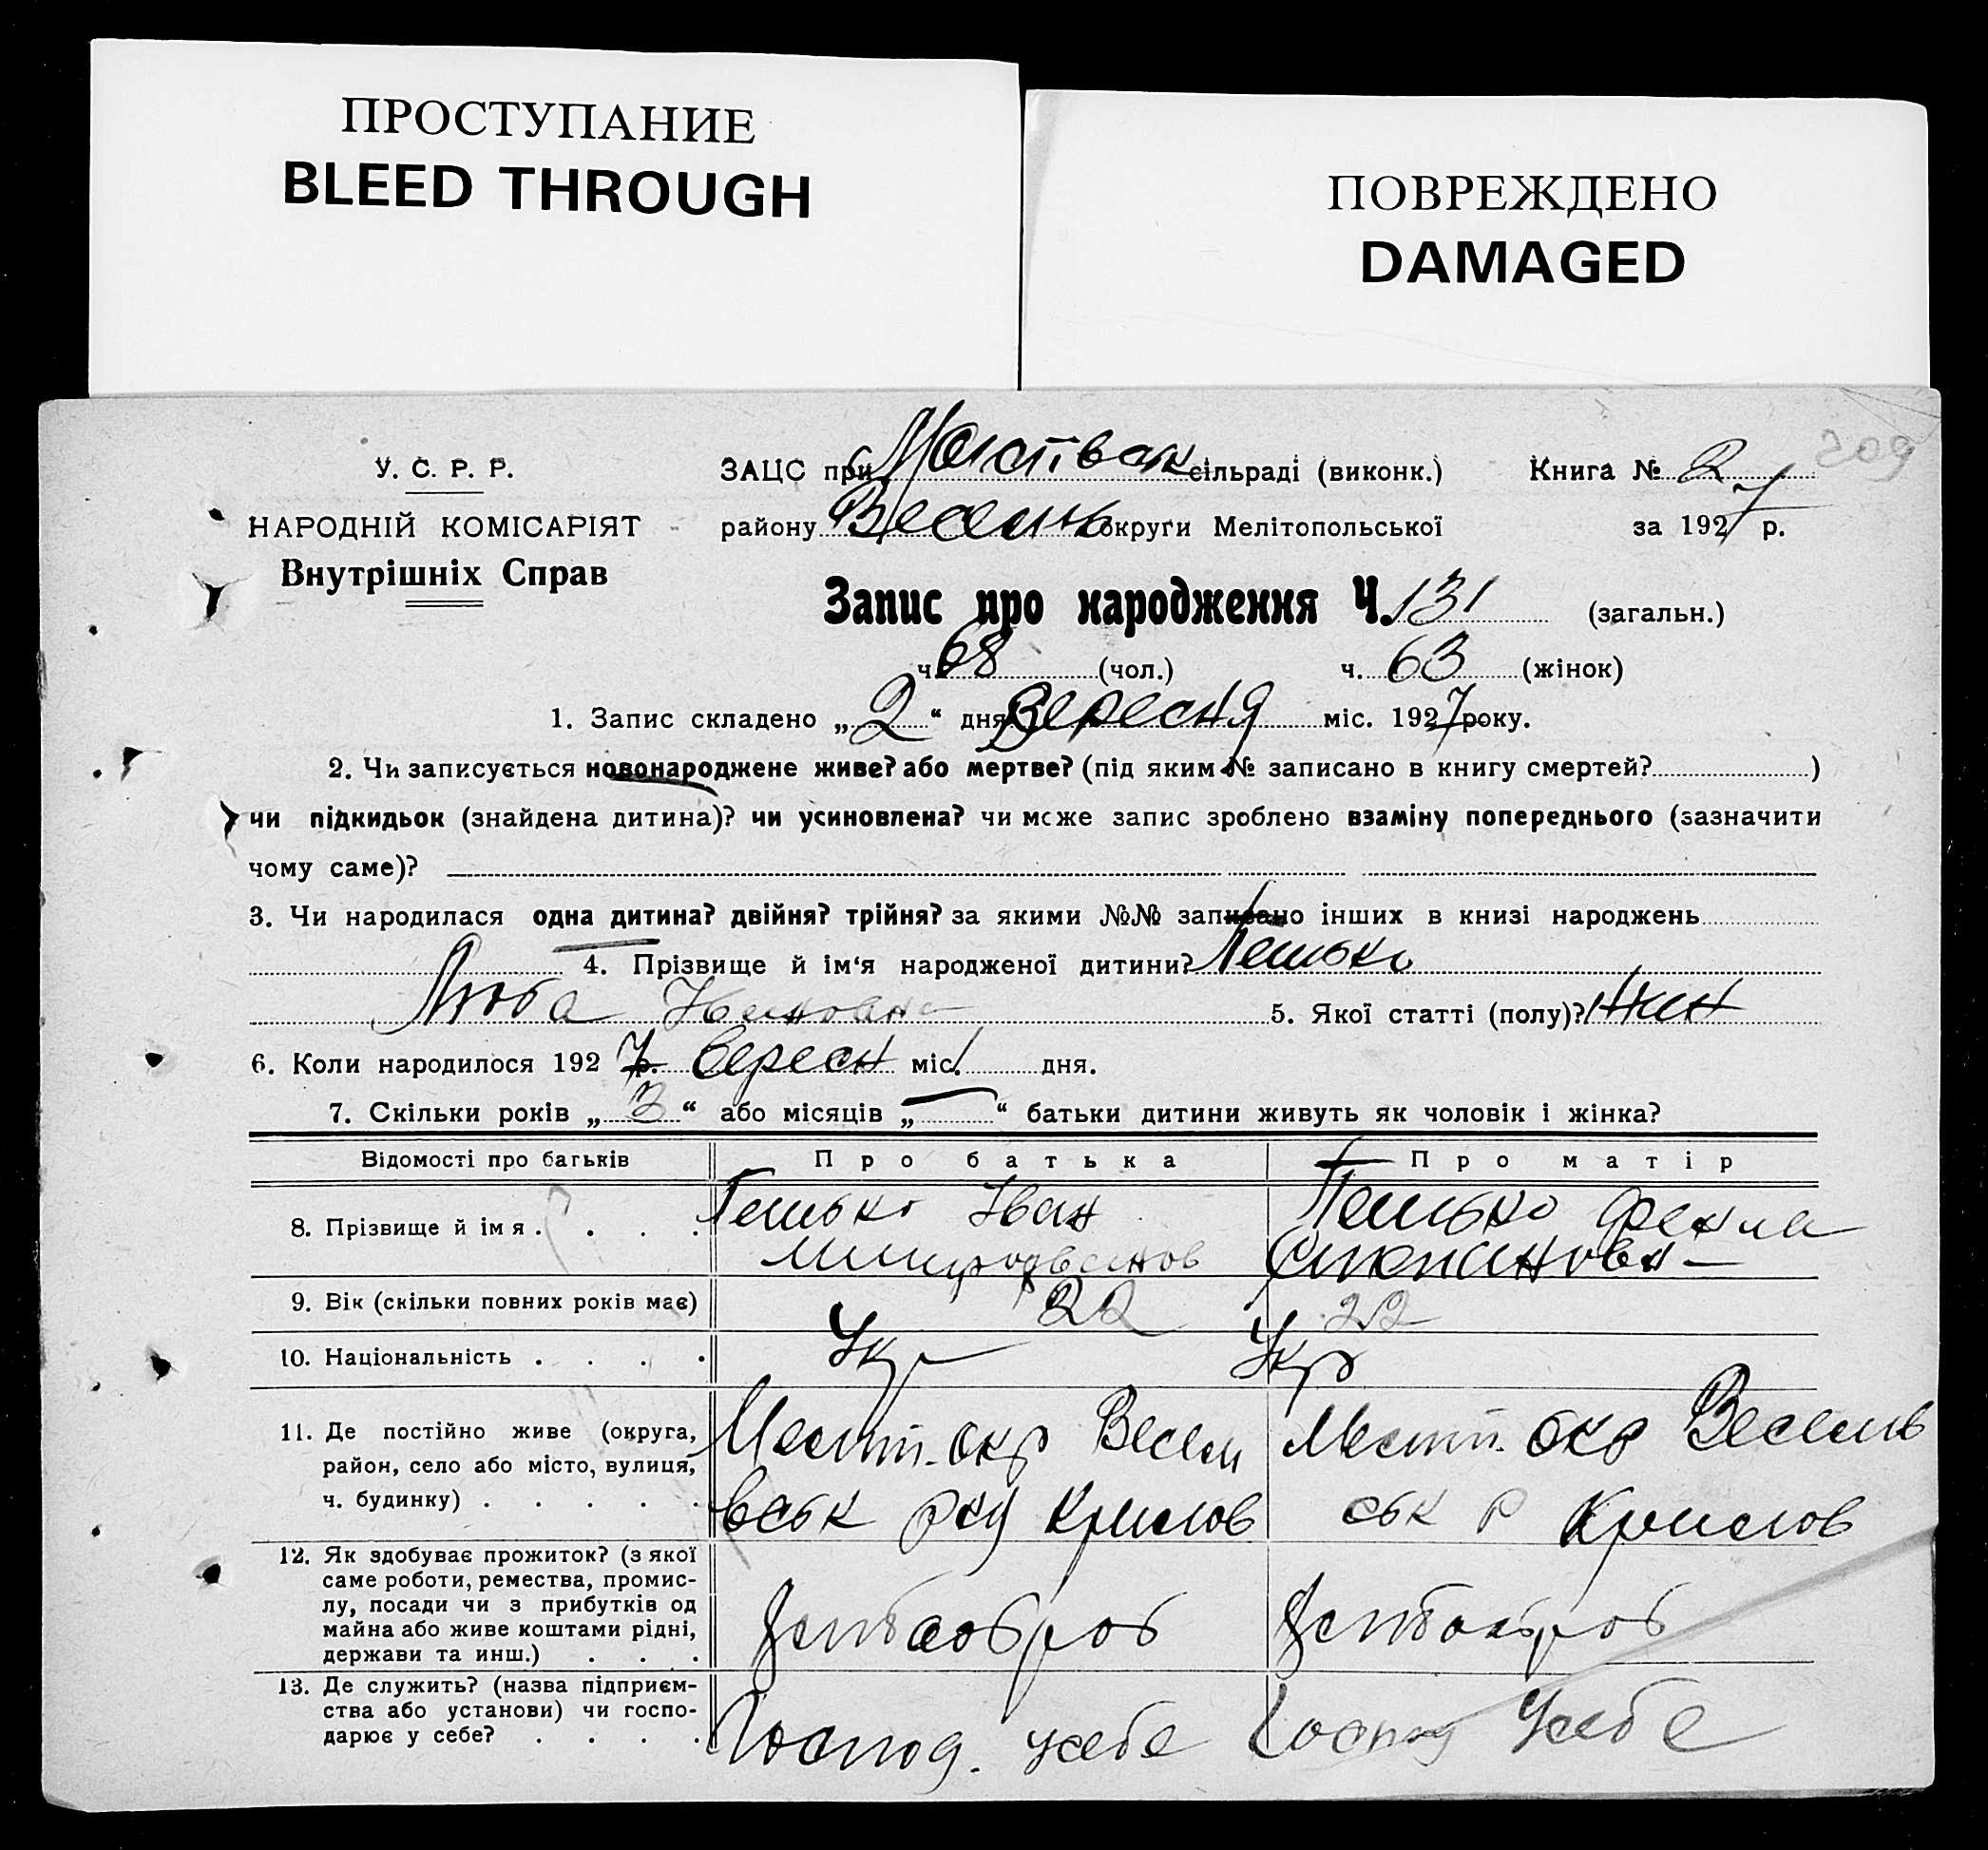 ПРОСТУПАНИЕ
BLEED THROUGH
ПОВРЕЖДЕНО
DAMAGED
209
У. С. Р. Р.
НАРОДНІЙ КОМІСАРІЯТ
Внутрішніх Справ
ЗАЦС при сільраді (виконк.) Книга № 2
району округи Мелітопольської за 1927 р.
Запис про народження Ч. 131 (загальн.)
ч. 68 (чол.) ч. 63 (жінок)
1. Запис складено „ 2 “ дня Вересня міс. 1927 року.
2. Чи записується новонароджене живе? або мертве? (під яким № записано в книгу смертей? )
чи підкидьок (знайдена дитина)? чи усиновлена? чи може запис зроблено взаміну попереднього (зазначити
чому саме)?
3. Чи народилася одна дитина? двійня? трійня? за якими №№ записано інших в книзі народжень
4. Прізвище й ім‘я народженої дитини?
Люба Ивановна 5. Якої статті (полу)? Жін
6. Коли народилося 1927 р. Вересн міс. 1 дня.
7. Скільки років „ 3 “ або місяців „ — “ батьки дитини живуть як чоловік і жінка?
Відомості про батьків Про батька Про матір
8. Прізвище й імя . . . . Іван Фекла
9. Вік (скільки повних років має) 22 22
10. Національність . . . . Укр Укр
11. Де постійно живе (округа,
район, село або місто, вулиця,
ч. будинку) . . . . .
Меліт. окр Весел Меліт. окр Весель
вськ рну Крилов ськ р Крилов
12. Як здобуває прожиток? (з якої
саме роботи, ремества, промис-
лу, посади чи з прибутків од
майна або живе коштами рідні,
держави та инш.) . . .
13. Де служить? (назва підприєм-
ства або установи) чи госпо-
дарює у себе? . . . .
Господ. у себе Господ у себе